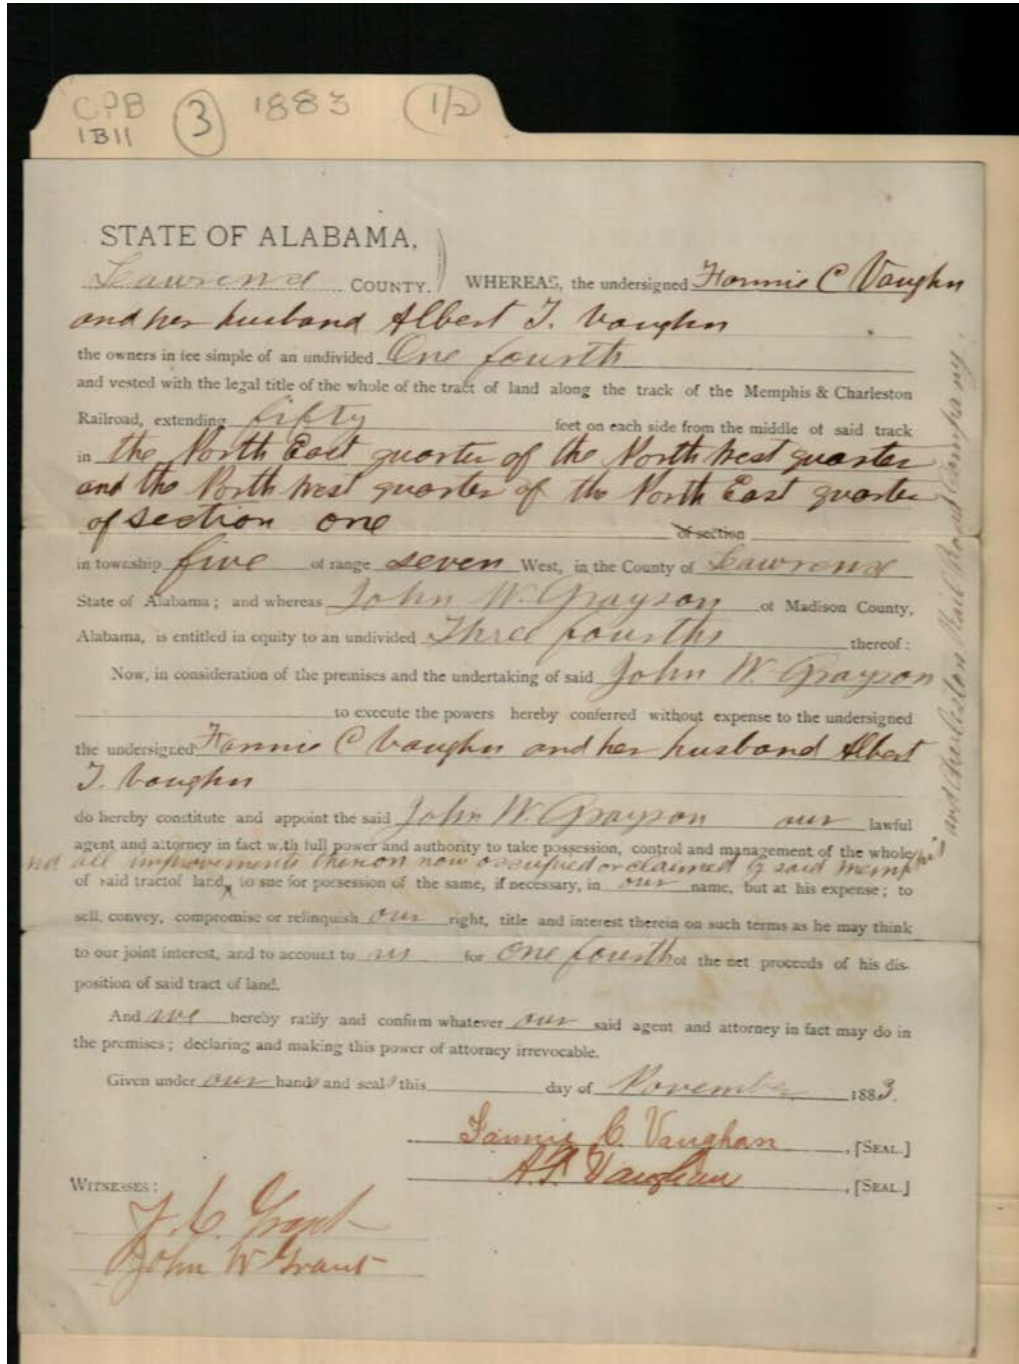 CPB 3 1883 (1/2)
1B11
STATE OF ALABAMA,
Lawrence COUNTY. WHEREAS, the undersigned Fannie C Vaughn
and her husband Albert T. Vaughn
the owners in fee simple of an undivided One fourth
and vested with the legal title of the whole of the tract of land along the track of the Memphis & Charleston
Railroad, extending fifty feet on each side from the middle of said track
in the North East quarter of the North West quarter
and the North West quarter of the North East quarter
of section one of section
in township five of range seven West, in the County of Lawrence
State of Alabama; and whereas John W. Grayson of Madison County,
Alabama, is entitled in equity to an undivided Three fourths thereof:
Now, in consideration of the premises and the undertaking of said John W. Grayson
to execute the powers hereby conferred without expense to the undersigned
the undersigned Fannie C Vaughn and her husband Albert
T. Vaughn
do hereby constitute and appoint the said John W. Grayson our lawful
agent and attorney in fact with full power and authority to take possession, control and management of the whole
and all improvements thereon now occupied or claimed by said Memphis
and Charleston Rail Road Company
of said tract of land, to sue for possession of the same, if necessary, in our name, but at his expense; to
sell, convey, compromise or relinquish our right, title and interest therein on such terms as he may think
to our joint interest, and to account to us for One fourth of the net proceeds of his dis-
position of said tract of land.
And we hereby ratify and confirm whatever our said agent and attorney in fact may do in
the premises; declaring and making this power of attorney irrevocable.
Given under our hands and seals this day of November 1883.
Fannie C. Vaughan, [SEAL.]
A.T. Vaughan, [SEAL.]
WITNESSES:
J. C. Grant
John W Grant